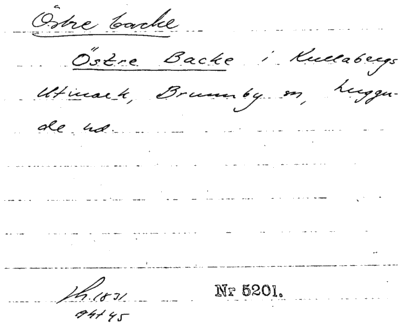 Östre backe
Östre Backe i Kullabergs
Utmark, Brunnby sn, Luggu-
de hd.
Nr 5201.